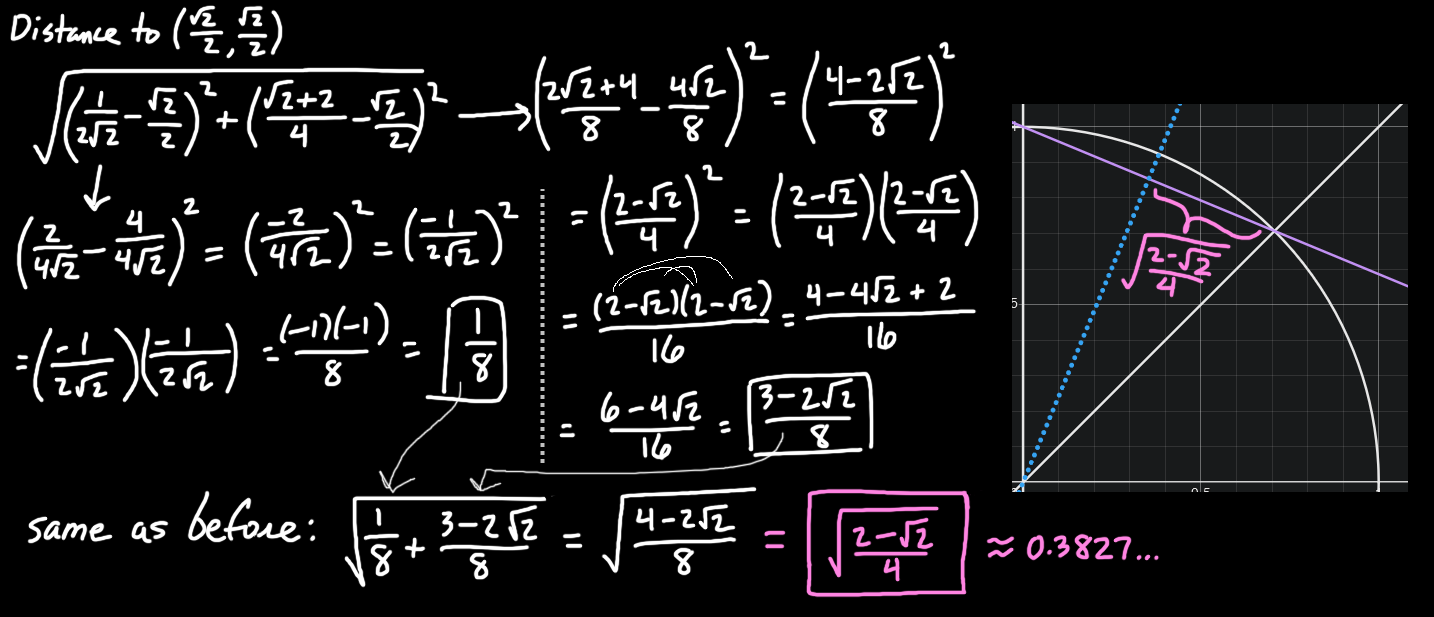 Distance to (√2/2, √2/2)
√((1/2√2 − √2/2)² + (√2+2/4 − √2/2)²) → (2√2+4/8 − 4√2/8)² = (4−2√2/8)²
(2/4√2 − 4/4√2)² = (−2/4√2)² = (−1/2√2)²
= (−1/2√2)(−1/2√2) = (−1)(−1)/8 = 1/8
= (2−√2/4)² = (2−√2/4)(2−√2/4)
= (2−√2)(2−√2)/16 = 4−4√2+2/16
= 6−4√2/16 = 3−2√2/8
same as before: √(1/8 + 3−2√2/8) = √(4−2√2/8) = √(2−√2/4) ≈ 0.3827...
√(2−√2/4)